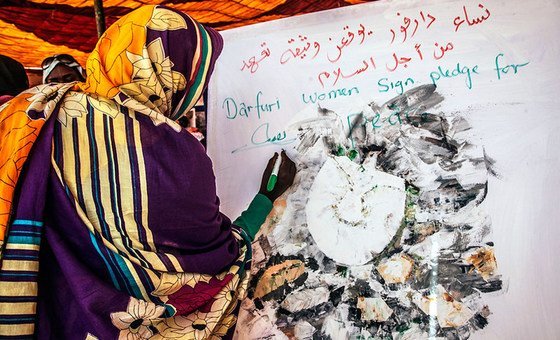 نساء دارفور يوقعن وثيقة تعهد
من أجل السلام
Darfuri women Sign pledge for
Peace